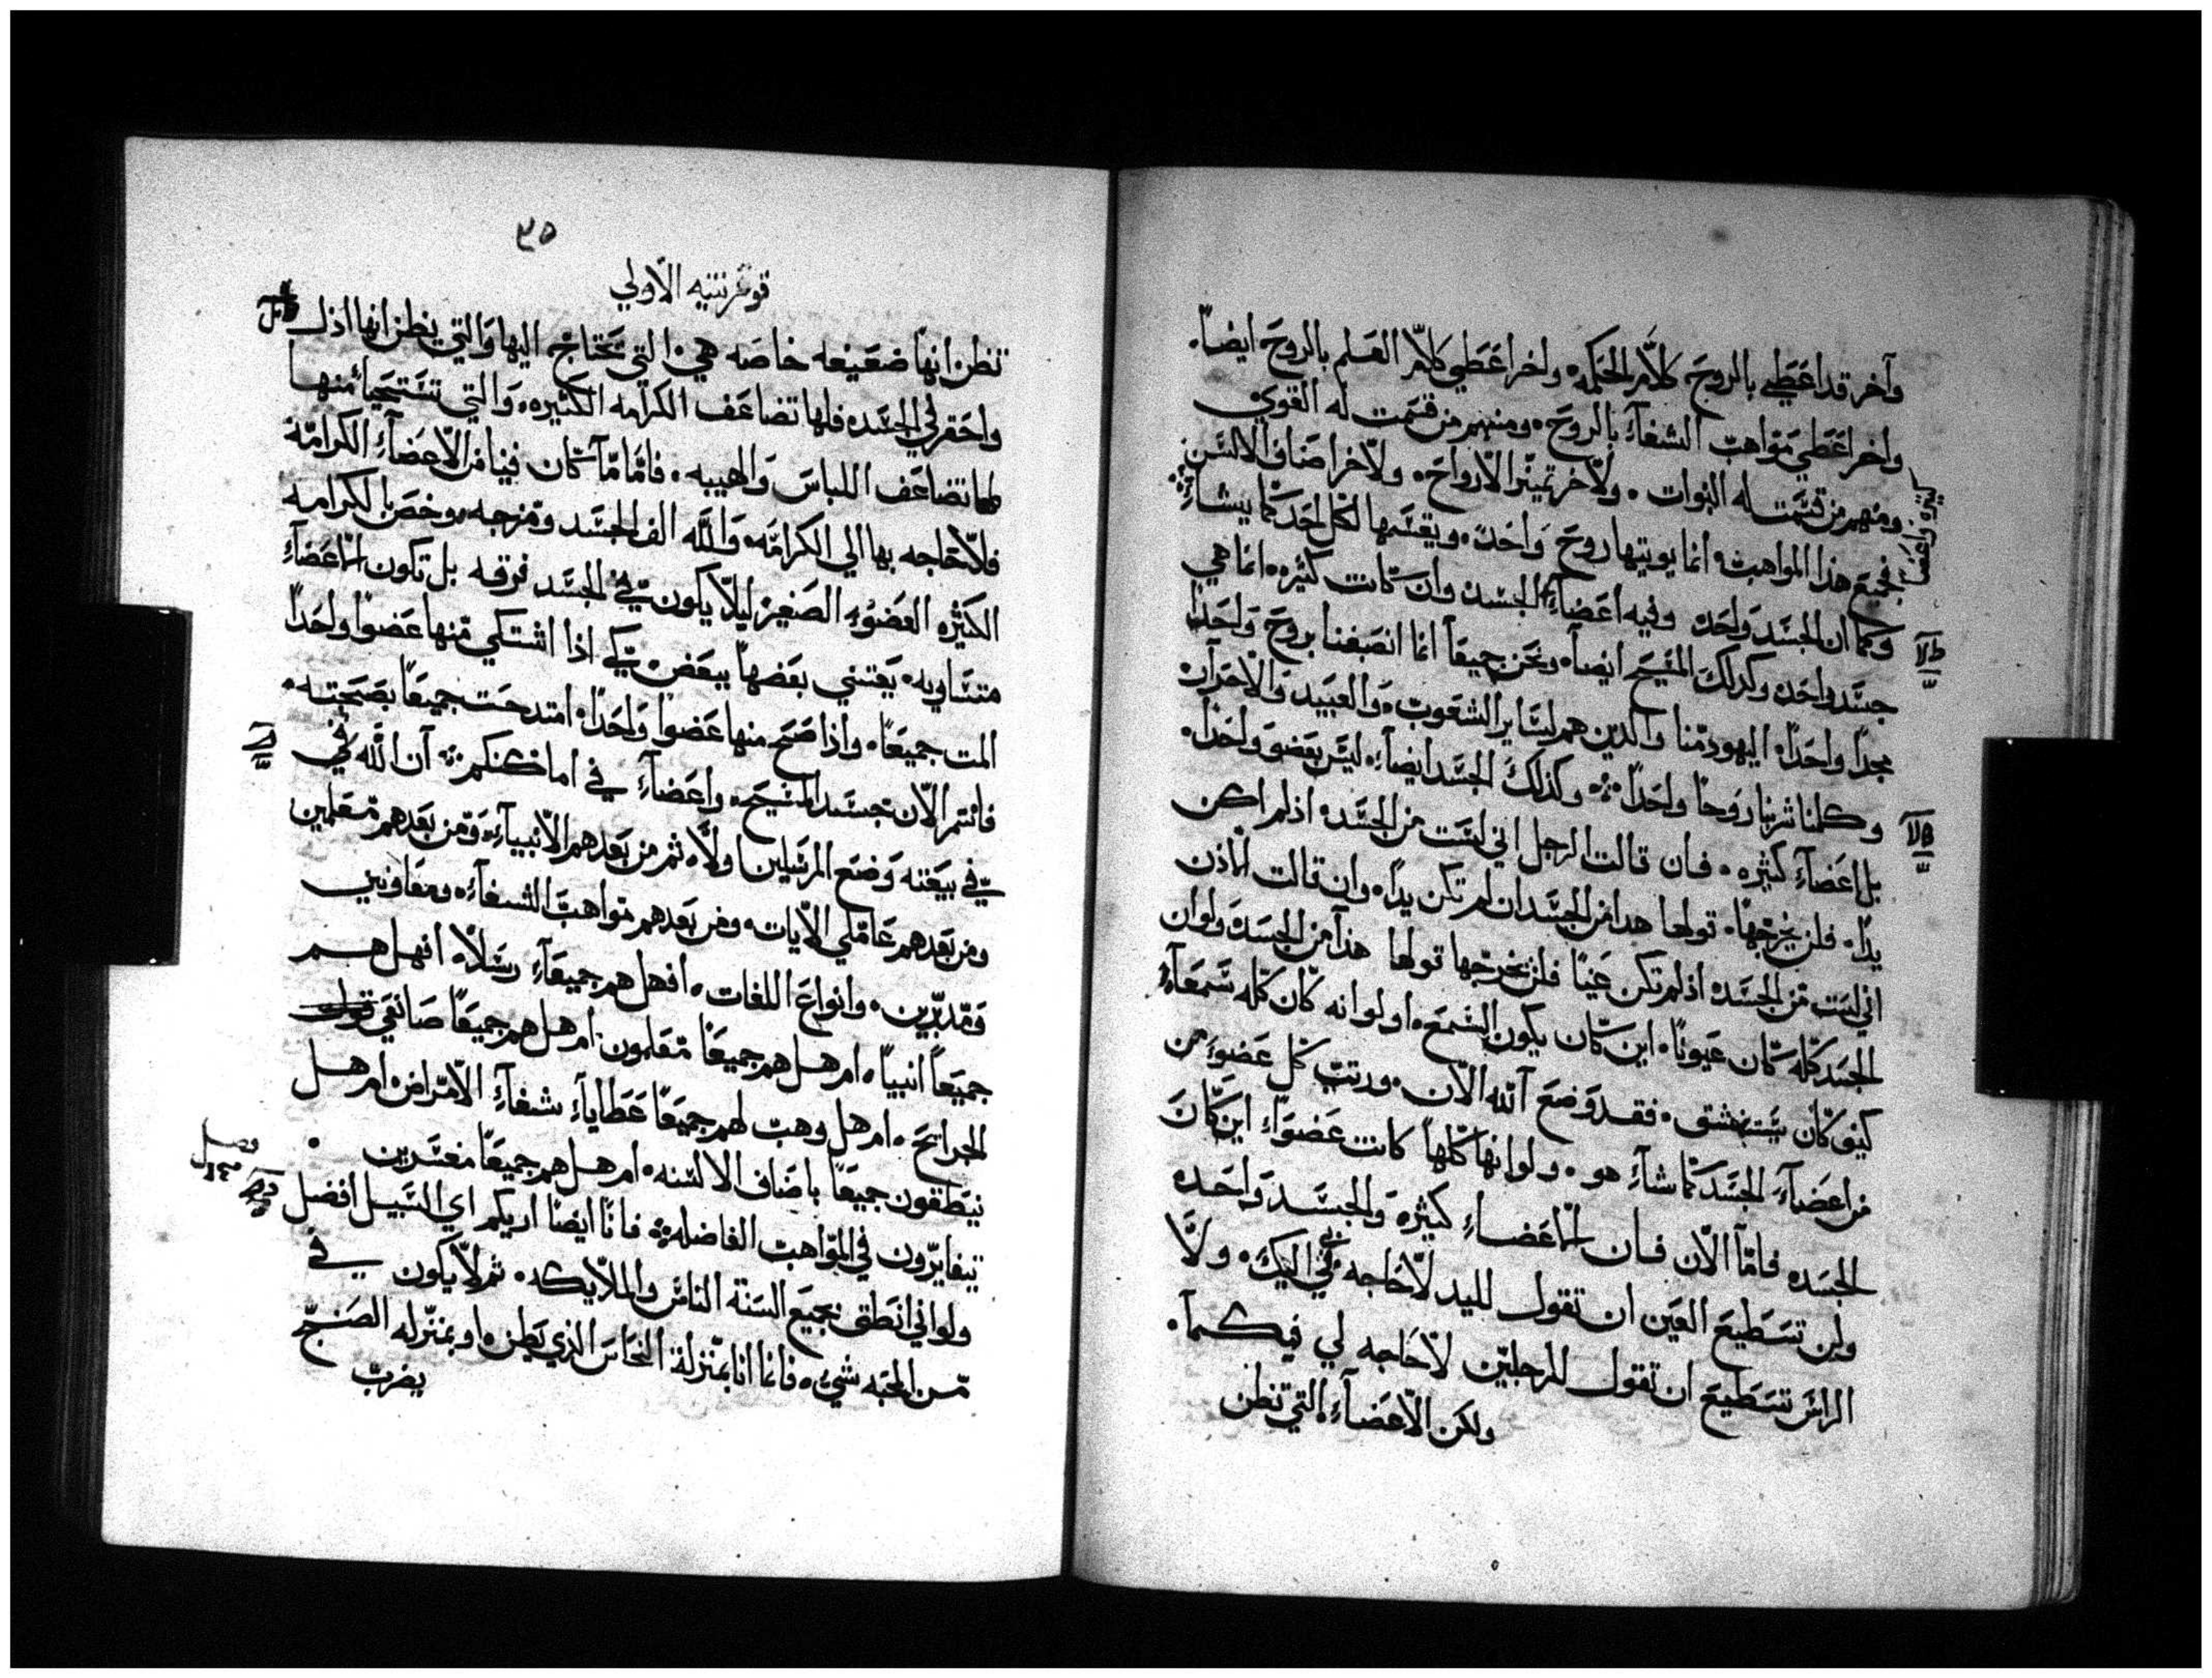 وآخر قد اعطي بالروح كلام الحكمه، واخر اعطي كلام العلم بالروح ايضاً.
واخر اعطي مواهب الشفآء بالروح، ومنهم من قسمت له القوي
ومنهم من قسمت له النبوات، ولآخر تميز الارواح، ولآخر اصناف الالسن
فجميع هذا المواهب انما يوتيها روح واحد، ويقسمها لكل احد كما يشاء
وكما ان الجسد واحد، وفيه اعضآء الجسد وان كانت كثيره، انما هي
جسد واحد، وكذلك المسيح ايضا، ونحن جميعاً انما انصبغنا بروح واحداً
مجداً واحداً، اليهود منا والدين هم لسآير الشعوب، والعبيد والاحرار،
وكلنا شربنا روحاً واحداً، وكذلك الجسد ايضاء ليس بعضو واحد،
بل اعضآء كثيره، فان قالت الرجل اني لست من الجسد، اذ لم اكن
يداً، فلن يخرجها، قولها هدا من الجسد ان لم تكن يداً، وان قالت الاذن
اني لست من الجسد، اذ لم تكن عيناً فلن يخرجها قولها هذا من الجسد، ولو ان
الجسد كله كان عيوناً، اين كان يكون السمع، او لو انه كان كله سمعاً
كيف كان يستنشق، فقد وضع الله الآن، ورتب كل عضو من
من اعضآء الجسد كما شآء هو، ولو انها كلها كانت عضواء اين كان
الجسد، فامّا الآن فان الاعضاء كثيره والجسد واحده
ولن تسطيع العين ان تقول لليد لا حاجه لي اليك، ولا
الراس تسطيع ان تقول للرجلين لا حاجه لي فيكما،
ولكن الاعضآء التي تظن
٣٥
قورنثيه الاولي
تظن انها ضعيفه خاصه هي التي تحتاج اليها والتي يظن انها اذل
واحقر في الجسد، فلها تضاعف الكرامه الكثيره، والتي تستحيا منها
لها تضاعف اللباس والهيبه، فامّا ما كان فينا من الاعضآء الكرامه
فلا حاجه بها الي الكرامه، والله الف الجسد ومزجه، وخص بالكرامه
الكثره العضو الصغير ليلا يكون في الجسد فرقه بل تكون الاعضآء
متساويه، يعتني بعضها ببعض، كي اذا اشتكي منها عضوا واحداً
المت جميعاً، واذا صح منها عضوا واحداً، امتدحت جميعاً بصحته،
فانتم الآن جسد المسيح، واعضآء في اماكنكم، ان الله
في بيعته وضع المرسلين اولاً، ثم من بعدهم الانبيآء، ومن بعدهم معلمين
ومن بعدهم عاملي الآيات، ومن بعدهم مواهب الشفآء، ومعاونين
ومدبرين، وانواع اللغات، افهل هم جميعآء رسلاً، افهل هم
جميعاً انبياء، ام هل هم جميعاً معلمون، ام هل هم جميعاً صانعي
الجرايح، ام هل وهب لهم جميعاً عطايآء شفآء الامراض، ام هل
ينطقون جميعاً باصناف الالسنه، ام هل هم جميعاً مفسرين
تتغايرون في المواهب الفاضله، فانا ايضا اريكم اي السبيل افضل
ولو اني انطق بجميع السنة الناس والملايكه، ثم لا يكون في
من المحبه شيء، فانما انا بمنزلة النحاس الذي يطن، او بمنزله الصنج
يضرب